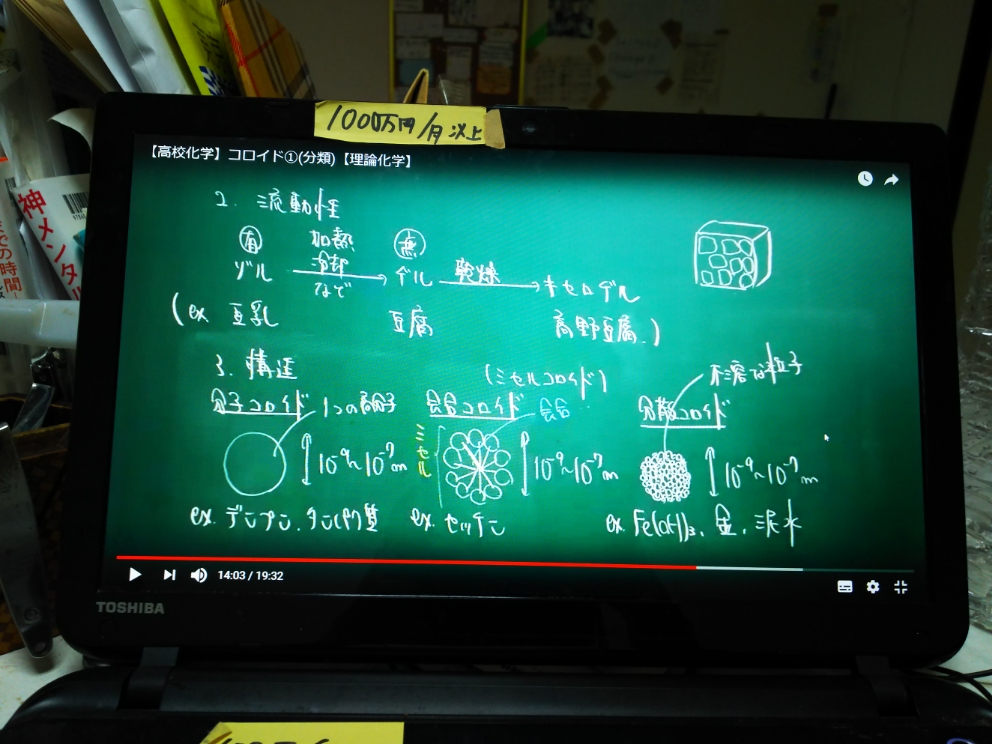 1000万円/月以上
【高校化学】コロイド①(分類)【理論化学】
2. 流動性
有 加熱 無
ゾル 冷却 → ゲル 乾燥 → キセロゲル
など
(ex. 豆乳 豆腐 高野豆腐.)
3. 構造
(ミセルコロイド) 不溶な粒子
分子コロイド 1つの高分子 会合コロイド 会合 分散コロイド
ミセル
10⁻⁹~10⁻⁷m 10⁻⁹~10⁻⁷m 10⁻⁹~10⁻⁷m
ex. デンプン、タンパク質 ex. セッケン ex. Fe(OH)₃、金、泥水
14:03 / 19:32
TOSHIBA
神メンタル
の時間